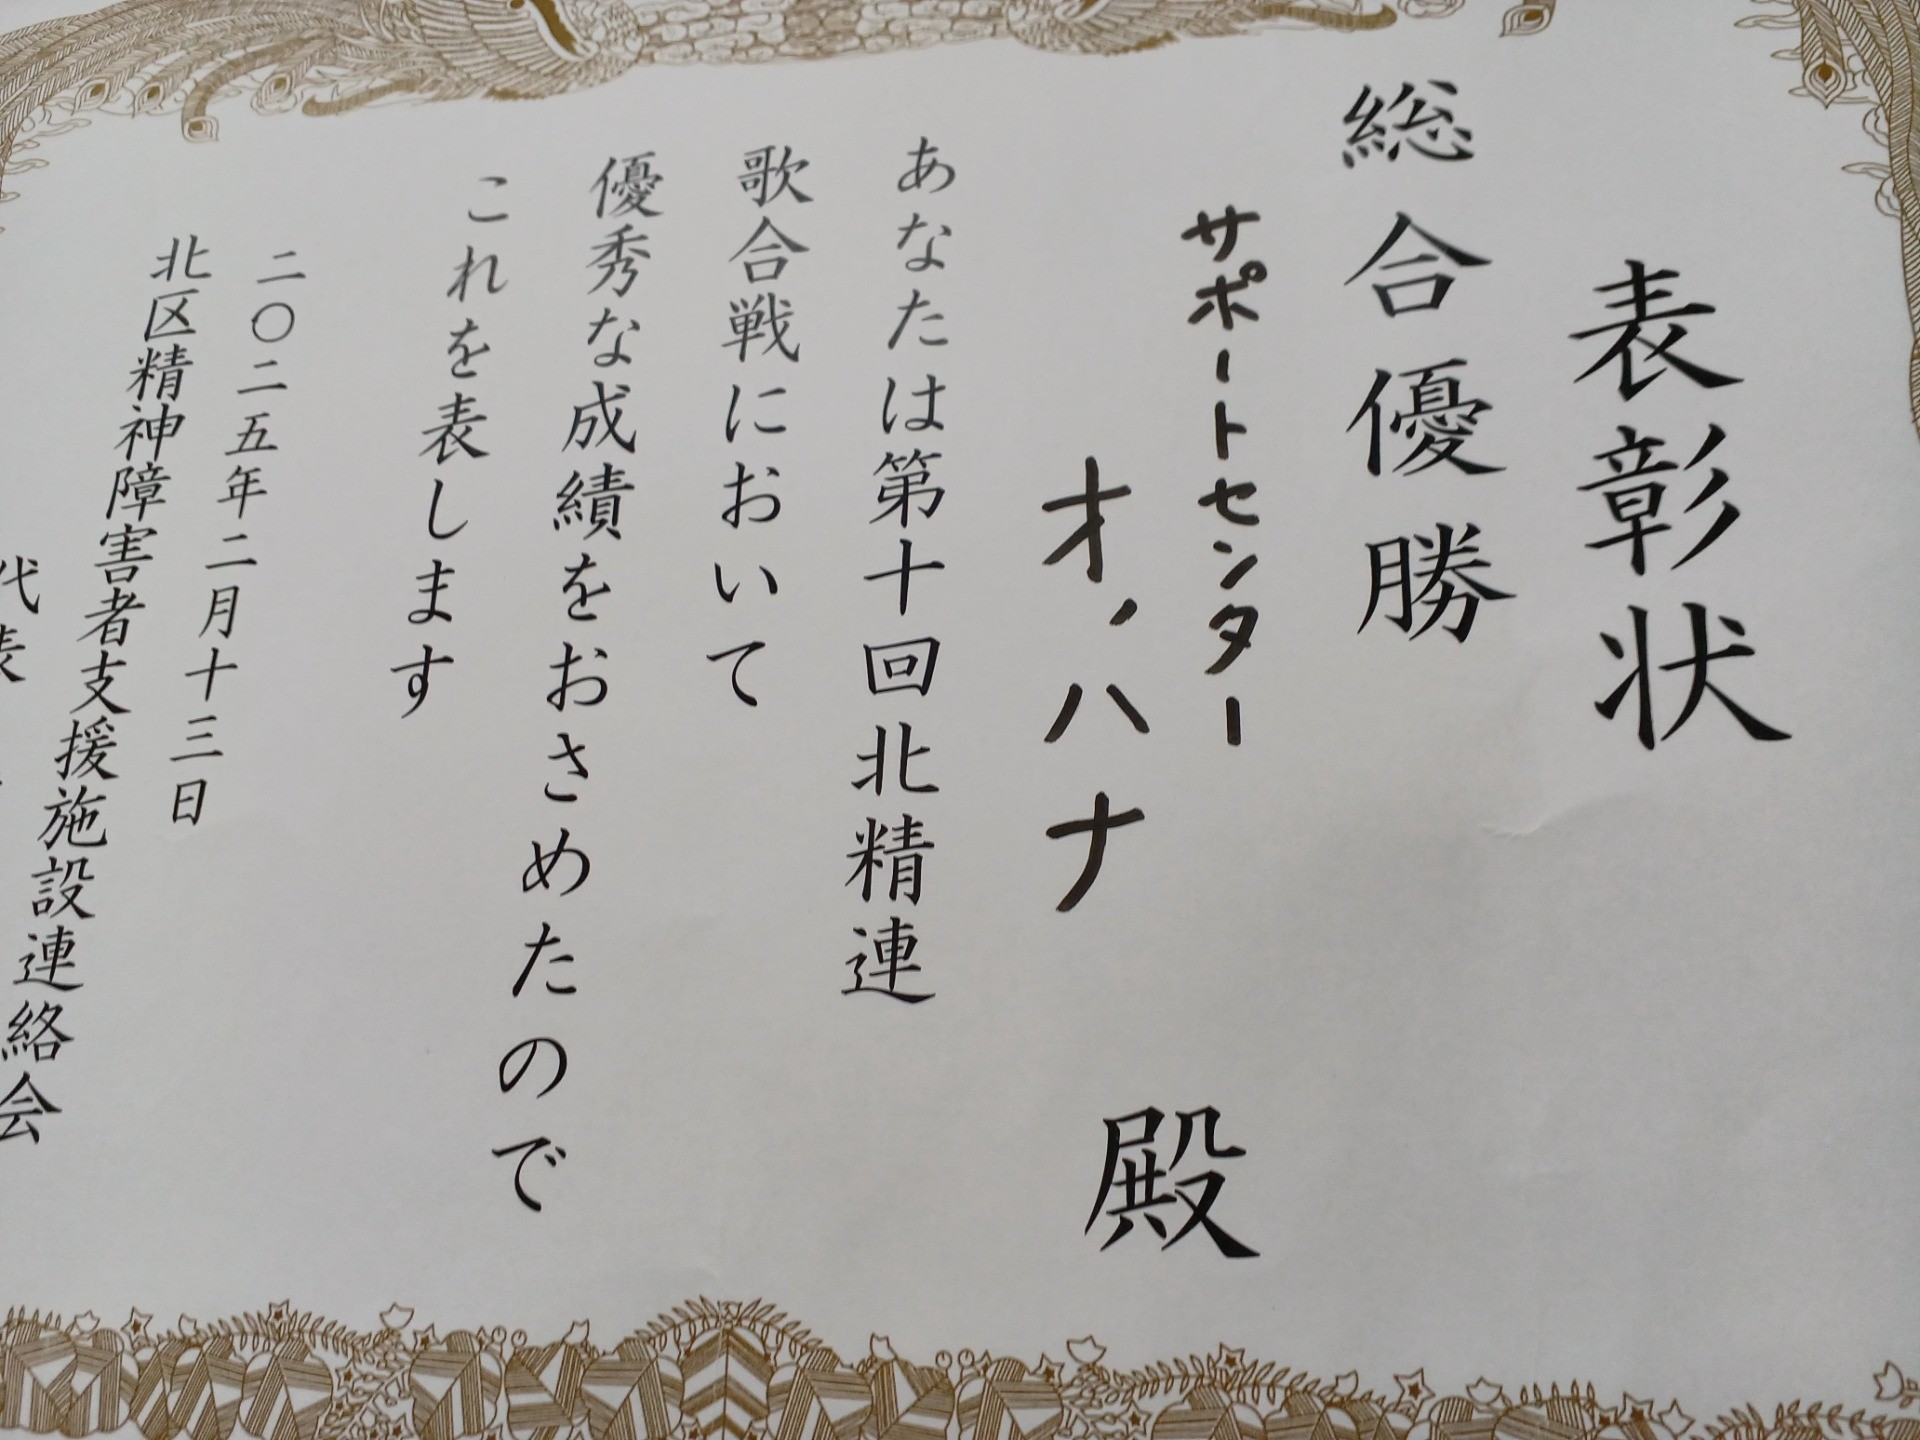 表彰状
総合優勝
サポートセンター
オ、ハナ
殿
あなたは第十回北精連
歌合戦において
優秀な成績をおさめたので
これを表します
二〇二五年二月十三日
北区精神障害者支援施設連絡会
代表